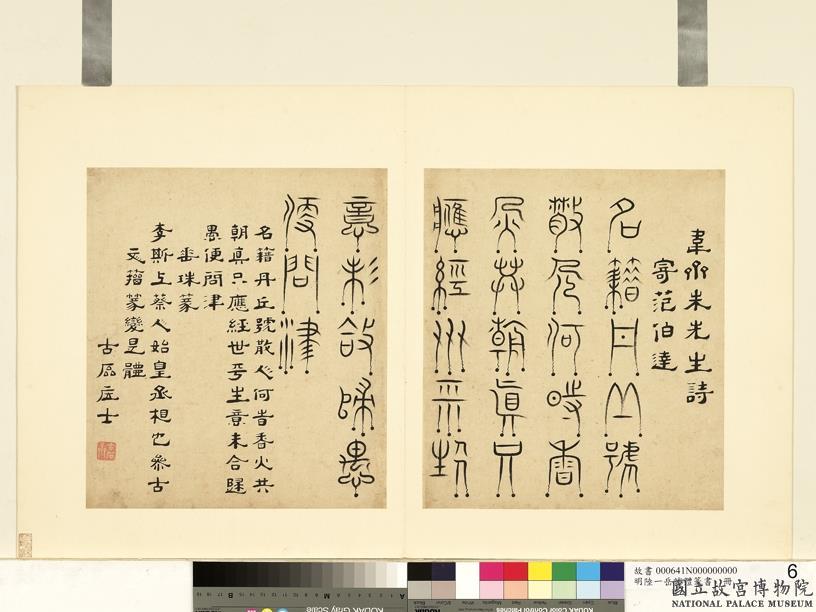 韋齋朱先生詩
寄范伯達
名籍丹丘號
散人何時香
火共朝真只
應經世平生
意未合歸愚
便問津
名籍丹丘號散人何旹香火共
朝真只應經世平生意未合歸
愚便問津
垂珠篆
李斯上蔡人始皇丞相也參古
文籀篆變是體
士
6
故書 000641N000000000
國立故宮博物院
NATIONAL PALACE MUSEUM
KODAK Gray Scale
KODAK Color Control Patches